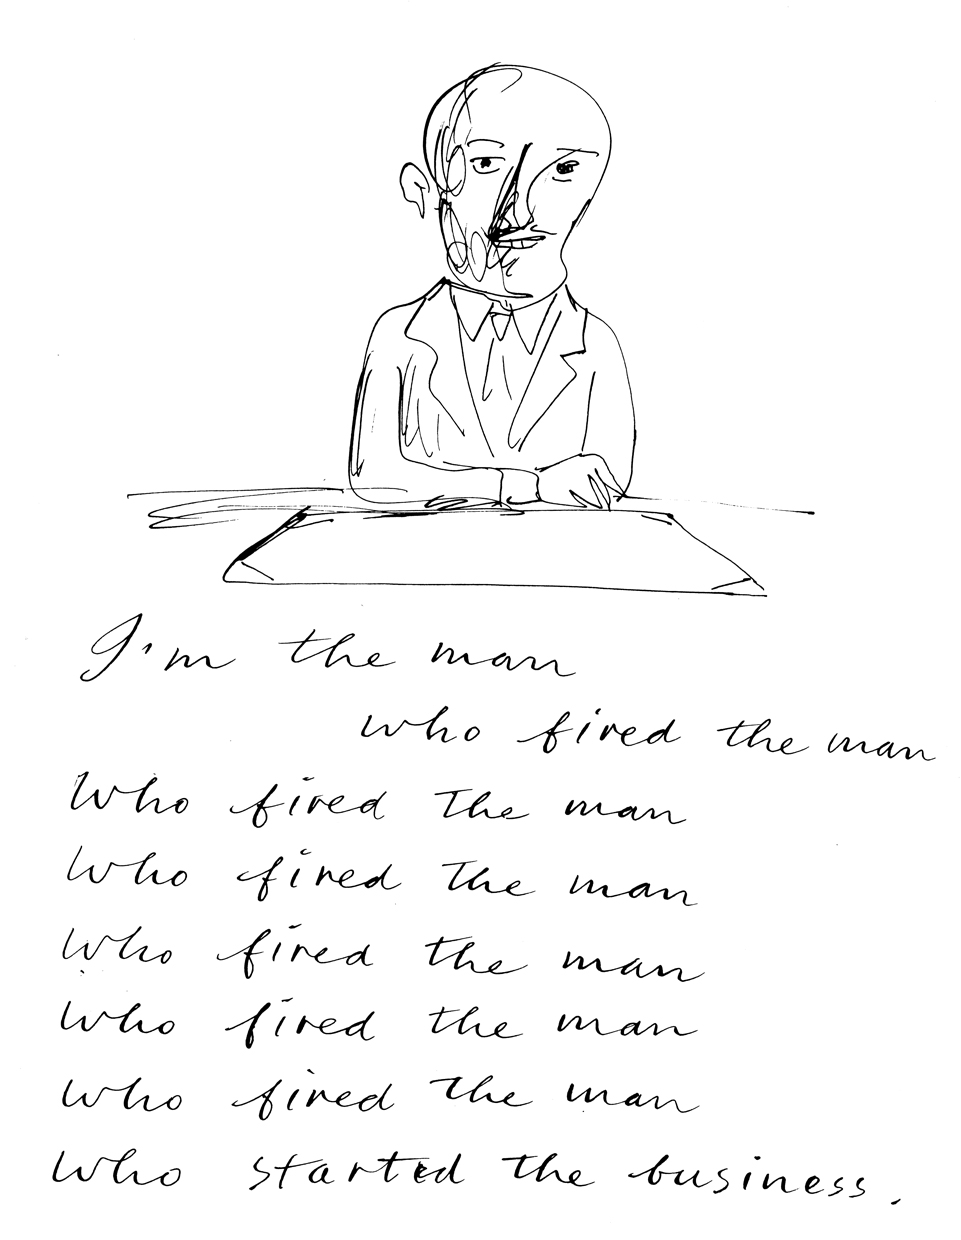 I'm the man
who fired the man
who fired the man
who fired the man
who fired the man
who fired the man
who fired the man
who started the business.